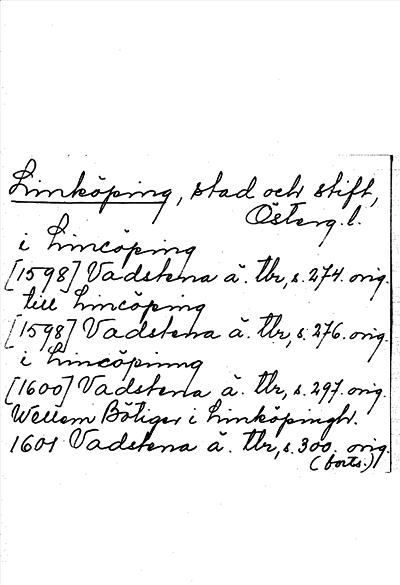 Linköping, stad och stift,
Österg.l.
i Linncöping
[1598] Vadstena ä. tbr, s. 274. orig.
till Linncöping
[1598] Vadstena ä. tbr, s. 276. orig.
i Linncöpinng
[1600] Vadstena ä. tbr, s. 297. orig.
Wellem Bötiger i Linnköpingh.
1601 Vadstena ä. tbr, s. 300. orig.
(forts.)